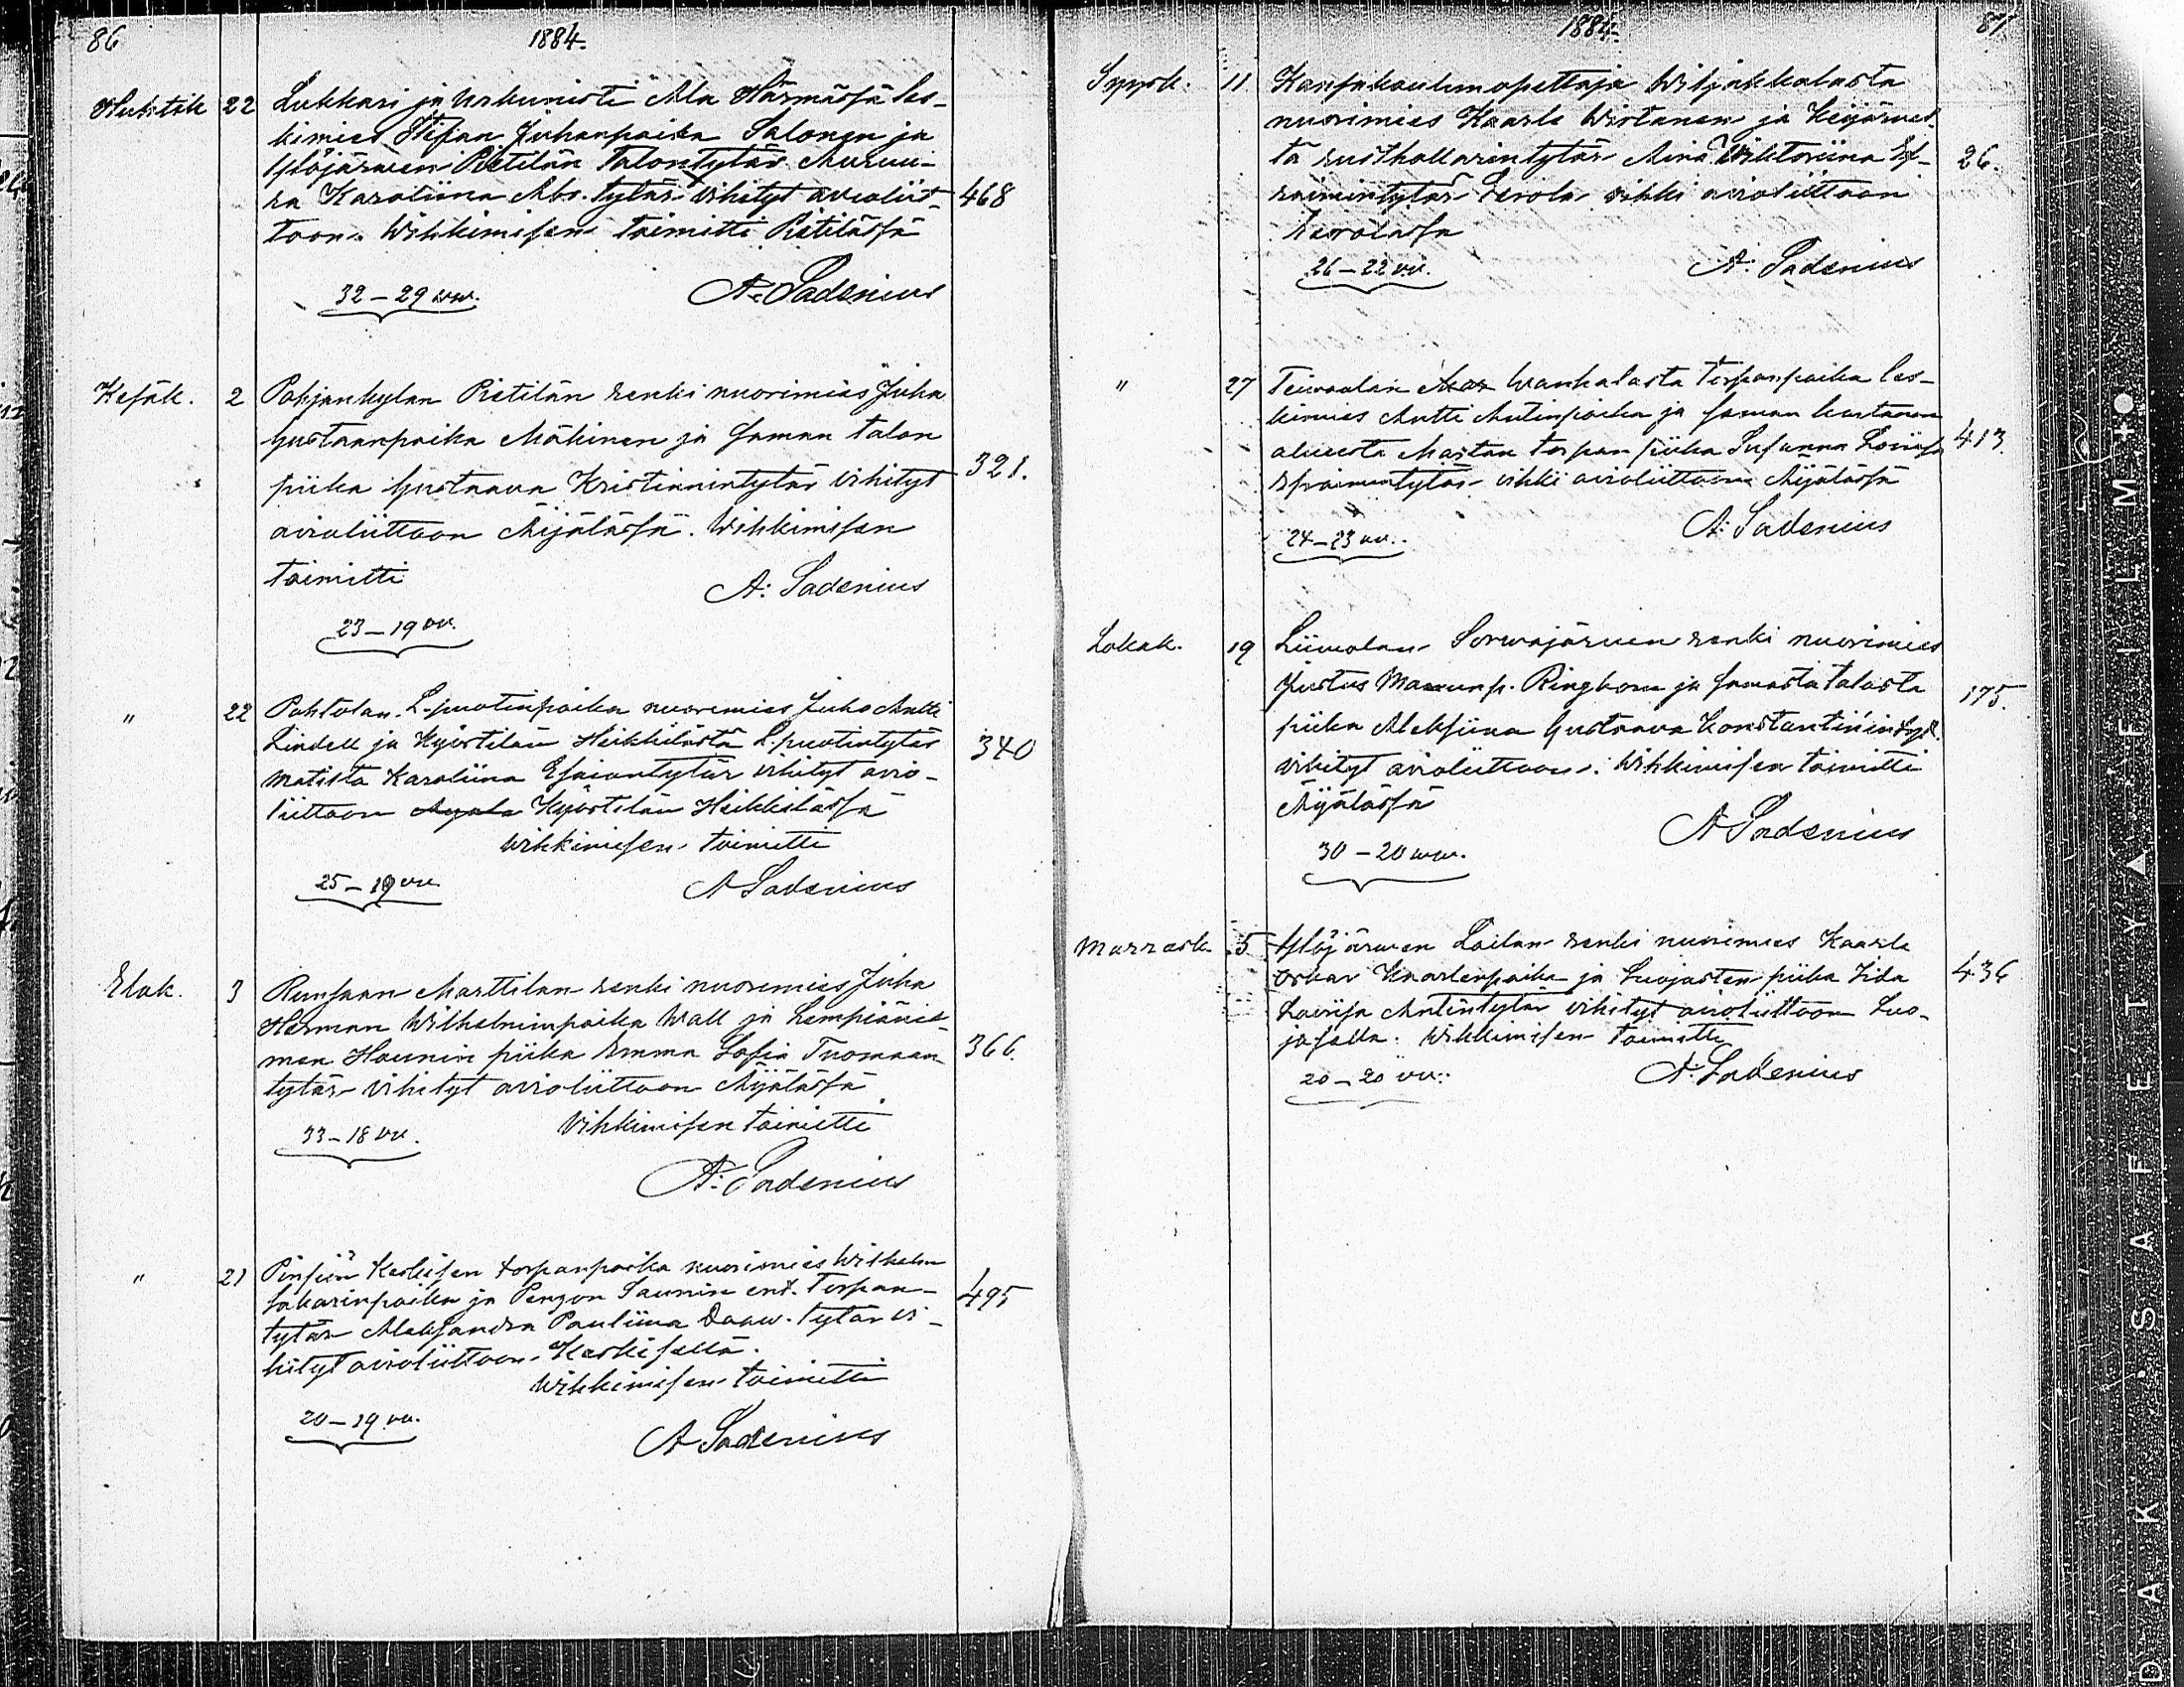 86
1884.
Huhtik 22 Lukkari ja Urkunisti Ala Härmässä les-
kimies Stefan Juhanpoika Salonen ja
Ylöjärwen Pietilän Talontytär
ra Karoliina Abr. tytär vihityt avioliit- 468
toon. Wihkimisen toimitti Pietilässä
32 – 29 ww. A: Sadenius
Kesäk. 2 Pohjankylän Pietilän renki nuorimies Juha
Gustaanpoika Mäkinen ja saman talon
piika Gustaava Kristianintytär vihityt 321.
avioliittoon Äijälässä. Wihkimisen
toimitti A: Sadenius
23 – 19 vv.
" 22 Pohtolan L-puotinpoika nuoremies Juho Antti
Lindell ja Kyöstilän Heikkilästä L.puotintytär
Matilta Karoliina Esaiantytär vihityt avio- 340
liittoon Kyöstilän Heikkilässä
wihkimisen toimitti
25 – 19 vv. A Sadenius
Elok. 3 Runsaan Marttilan renki nuoremies Juha
Herman Wilhelminpoika Wall ja Lempiänie-
men Haunin piika Emma Sofia Tuomaan 366.
tytär vihityt avioliittoon Äijälässä
Vihkimisen toimitti
33 – 18 vv.
A: Sadenius
" 21 Pinsiön Keskisen torpanpoika nuorimies Wilhelm
Sakarinpoika ja Penzon Saunin ent. Torpan- 495
tytär Aleksandra Pauliina Daaw. tytär vi-
hityt avioliittoon Keskisellä.
Wihkimisen toimitti
20 – 19 vv.
A Sadenius
1884.
87
Syysk. 11 Kansakoulunopettaja Wiljakkalasta
nuorimies Kaarle Wirtanen ja Keijärwes-
tä rusthollarintytär Aina Wiktoriina Ef- 26.
raimintytär Eerola vihki avioliittoon
Eerolassa
26 – 22 vv. A: Sadenius
" 27 Teiwaalan Wanhalasta torpanpoika les-
kimies Antti Antinpoika ja saman kartanon
alueesta Martan torpan piika Susanna Loviisa 413.
Efraimintytär vihki avioliittoon Äijälässä
24 – 23 vv. A: Sadenius
Lokak. 19 Liuwolan Sorwajärwen renki nuorimies
Justus Ringbom ja samasta talosta 175.
piika Aleksiina Gustaava Konstantiinintyt.
vihityt avioliittoon. Wihkimisen toimitti
Äijälässä
A Sadenius
30 – 20 ww.
Marrask. 5 Ylöjärwen Loilan renki nuorimies Kaarle
Oskar Kaarlenpoika ja Luojasten piika Iida 436
Loviisa Antintytär vihityt avioliittoon Luo-
jasella. Wihkimisen toimitti
20 – 20 vv. A: Sadenius
DAK · SAFETY FILM